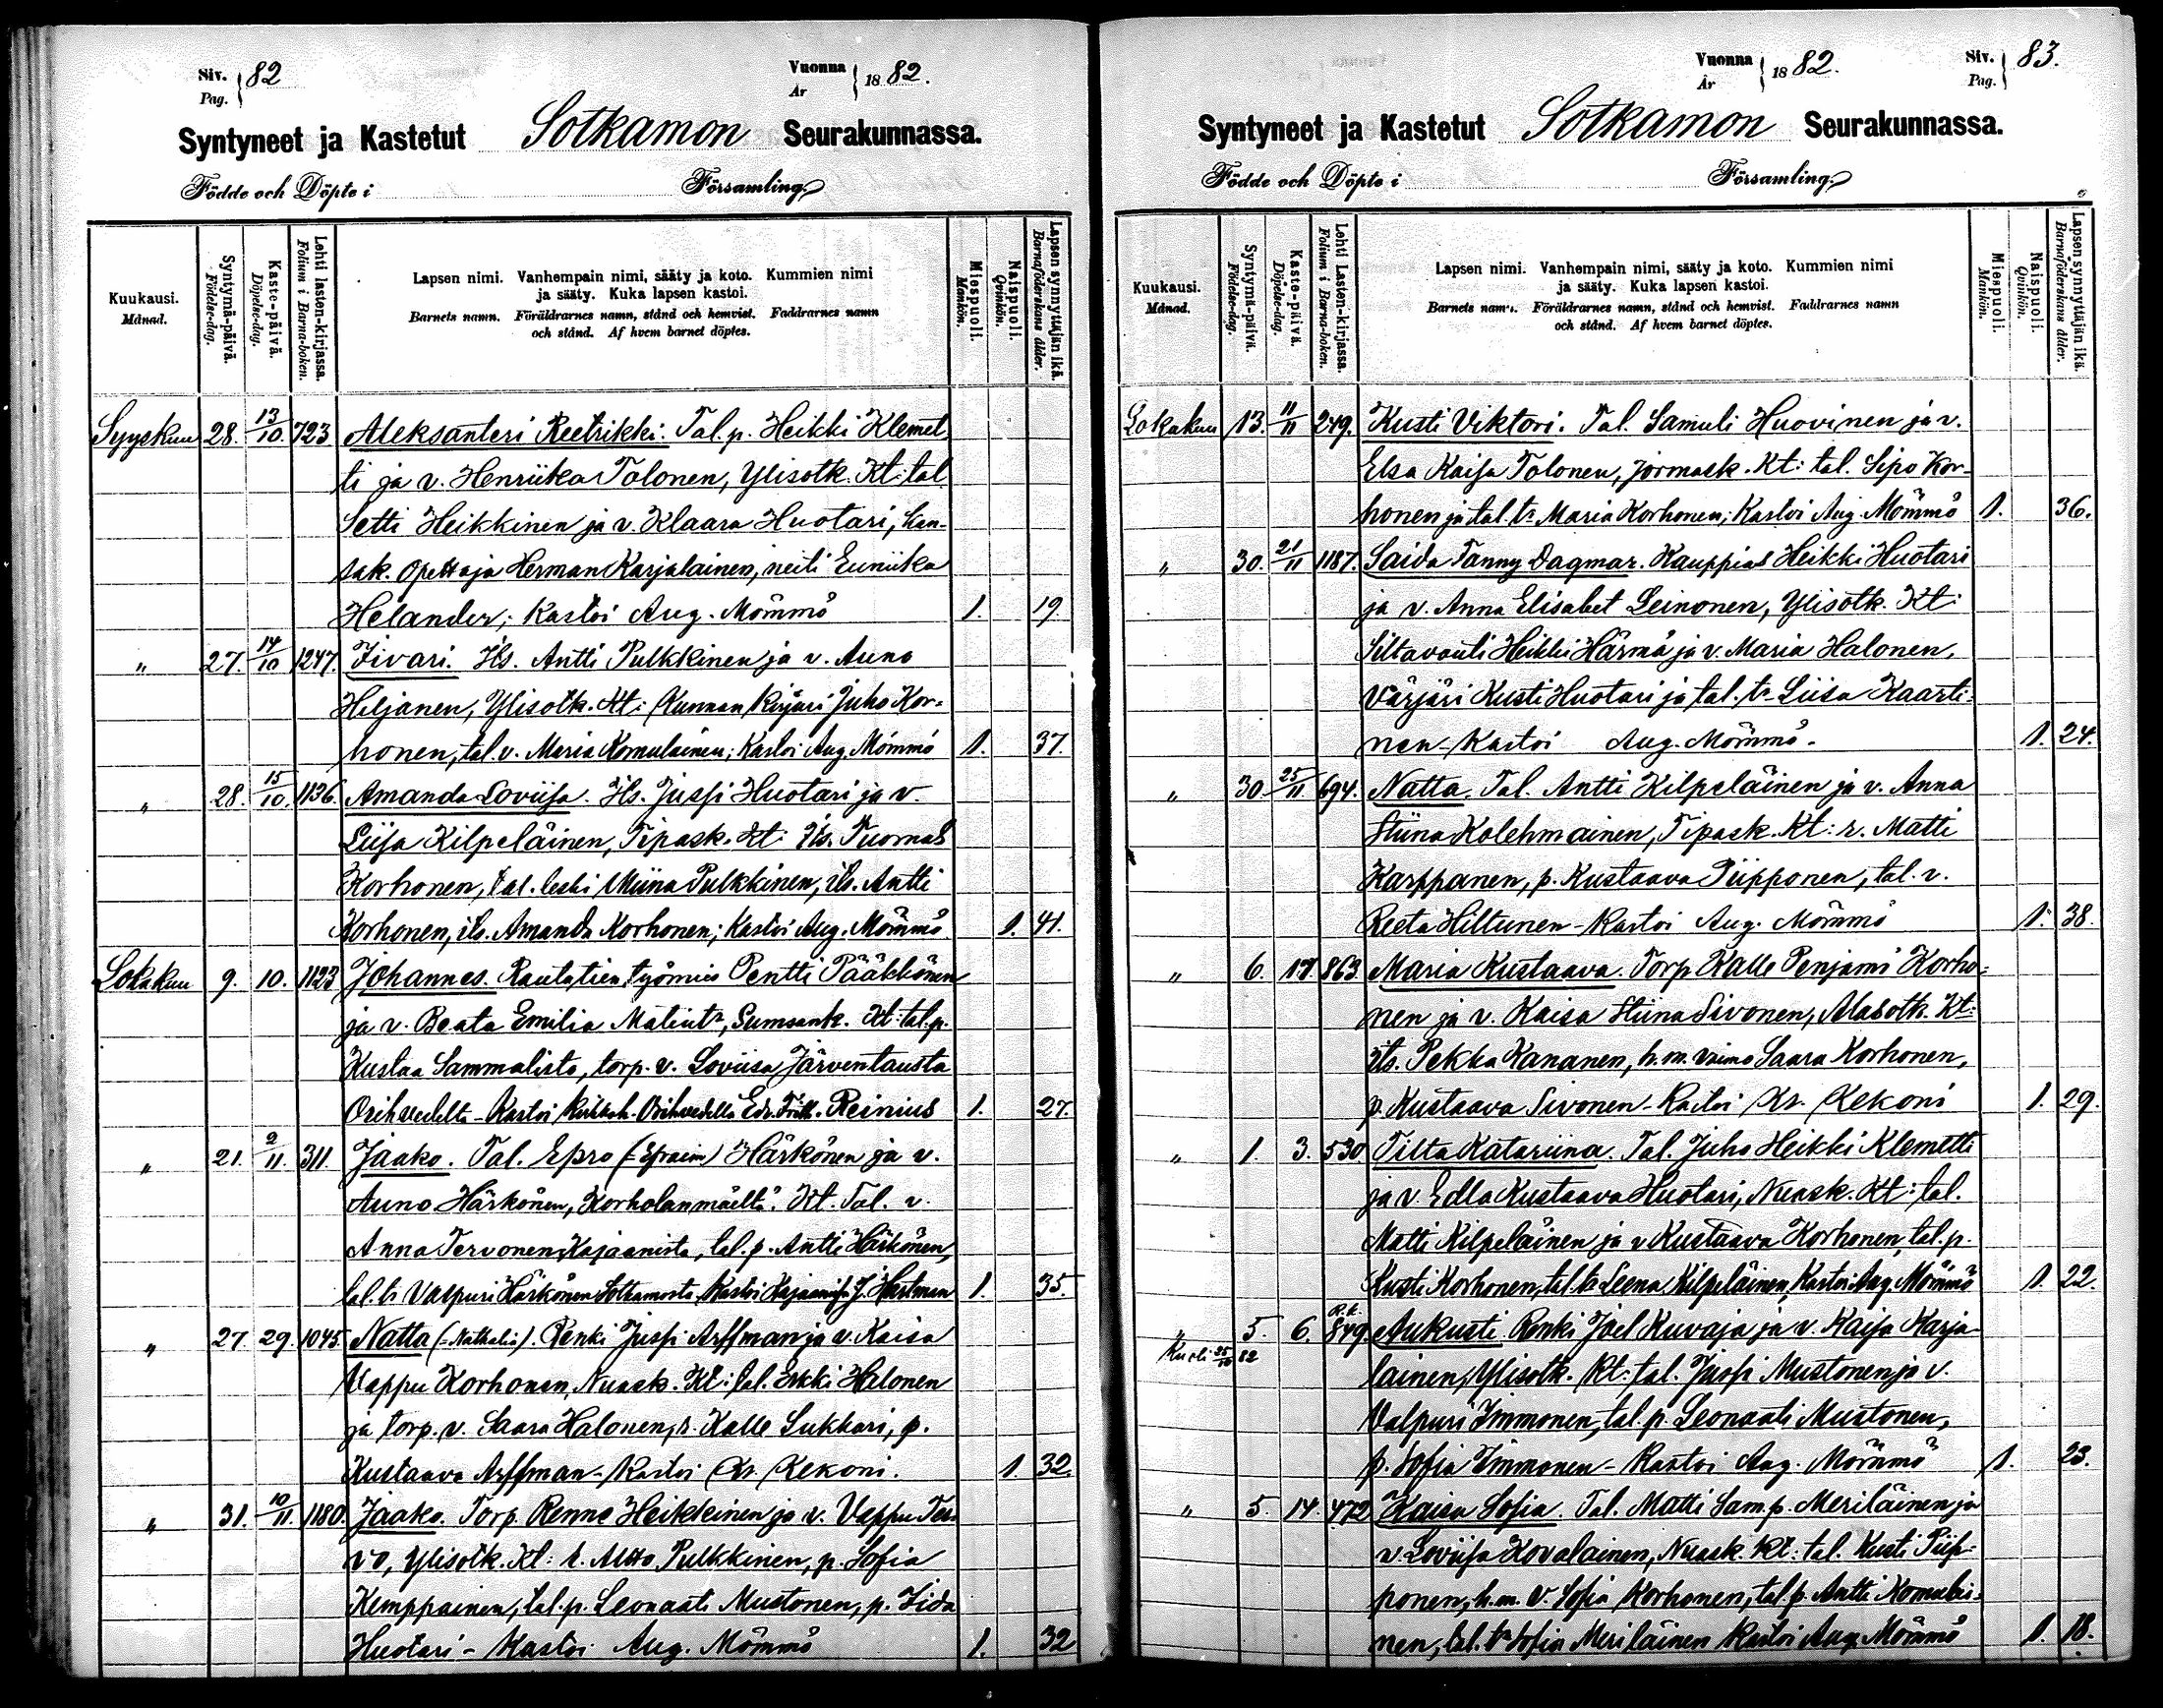 Siv. Pag. 82
Vuonna År 1882.
Syntyneet ja Kastetut Sotkamon Seurakunnassa.
Födde och Döpte i Församling.
Kuukausi. Månad.
Syntymä-päivä. Födelse-dag.
Kaste-päivä. Döpelse-dag.
Lehti lasten-kirjassa. Folium i Barna-boken.
Lapsen nimi. Vanhempain nimi, sääty ja koto. Kummien nimi
ja sääty. Kuka lapsen kastoi.
Barnets namn. Föräldrarnes namn, stånd och hemvist. Faddrarnes namn
och stånd. Af hvem barnet döptes.
Miespuoli. Mankön.
Naispuoli. Qvinkön.
Lapsen synnyttäjän ikä. Barnaföderskans ålder.
Syyskuu 28. 13/10. 723 Aleksanteri Reetrikki. Tal. p. Heikki Klemet-
ti ja v. Henriika Tolonen, Ylisotk. Kt: tal.
Setti Heikkinen ja v. Klaara Huotari, kan-
sak. opettaja Herman Karjalainen, neiti Euniika
Helander; kastoi Aug. Mömmö 1. 19.
" 27. 14/10 1247. Iivari. Its. Antti Pulkkinen ja v. Auno
Hiljanen, Ylisotk. Kt: Kunnan kirjuri Juho Kor-
honen, tal. v. Maria Komulainen; Kastoi Aug. Mömmö 1. 37.
" 28. 15/10. 1136. Amanda Loviisa. Its. Jussi Huotari ja v.
Liisa Kilpeläinen, Tipask. Kt: Its. Tuomas
Korhonen, tal. leski Miina Pulkkinen, its. Antti
Korhonen, its. Amanda Korhonen; Kastoi Aug. Mömmö. 1. 41.
Lokakuu 9. 10. 1123 Johannes. Rautatien työmies Pentti Pääkkönen
ja v. Beata Emilia Matint:r, Sumsank. Kt: tal. p.
Kustaa Sammalisto, torp. v. Loviisa Järventausta
Orihvedeltä - Kastoi kirkkoh. Orihvedellä Edv. Fredr. Reinius 1. 27.
" 21. 2/11. 311. Jaako. Tal. Epro (=Efraim) Härkönen ja v.
Auno Härkönen, Korholanmäeltä. Kt. Tal. v.
Anna Tervonen Kajaanista, tal. p. Antti Härkönen,
tal. tr Valpuri Härkönen Sotkamosta, Kastoi Kajaanissa J. Hartman 1. 35.
" 27. 29. 1045. Natta (=Nathalia). Renki Jussi Arffman ja v. Kaisa
Vappu Korhonen, Nuask. Kt: tal. Erkki Halonen
ja torp. v. Saara Halonen, r. Kalle Sukkari, p.
Kustaava Arffman - Kastoi Kr. Kekoni. 1. 32.
" 31. 10/11. 1180. Jaako. Torp. Renne Heikkinen ja v. Vappu Ter-
vo, Ylisotk. Kt: r. Atto Pulkkinen, p. Sofia
Kemppainen, tal. p. Leonaati Mustonen, p. Iida
Huotari - Kastoi Aug. Mömmö 1. 32
Vuonna År 1882.
Siv. Pag. 83.
Syntyneet ja Kastetut Sotkamon Seurakunnassa.
Födde och Döpte i Församling.
Kuukausi. Månad.
Syntymä-päivä. Födelse-dag.
Kaste-päivä. Döpelse-dag.
Lehti Lasten-kirjassa. Folium i Barna-boken.
Lapsen nimi. Vanhempain nimi, sääty ja koto. Kummien nimi
ja sääty. Kuka lapsen kastoi.
Barnets namn. Föräldrarnes namn, stånd och hemvist. Faddrarnes namn
och stånd. Af hvem barnet döptes.
Miespuoli. Mankön.
Naispuoli. Qvinkön.
Lapsen synnyttäjän ikä. Barnaföderskans ålder.
Lokakuu 13. 11/11 249. Kusti Viktori. Tal. Samuli Huovinen ja v.
Elsa Kaisa Tolonen, Jormask. Kt: tal. Sipo Kor-
honen ja tal. tr Maria Korhonen; Kastoi Aug. Mömmö 1. 36.
" 30. 21/11 1187. Saida Fanny Dagmar. Kauppias Heikki Huotari
ja v. Anna Elisabet Leinonen, Ylisotk. Kt:
Siltavouti Heikki Härmä ja v. Maria Halonen,
Värjäri Kusti Huotari ja tal. tr Liisa Kaarti-
nen - Kastoi Aug. Mömmö. 1. 24.
" 30 25/11 694. Natta. Tal. Antti Kilpeläinen ja v. Anna
Stiina Kolehmainen, Tipask. Kt: r. Matti
Karppanen, p. Kustaava Piipponen, tal. v.
Reeta Hiltunen - Kastoi Aug. Mömmö 1. 38.
" 6. 17. 863. Maria Kustaava. Torp. Kalle Penjami Korho-
nen ja v. Kaisa Stiina Sivonen, Alasotk. Kt:
Its. Pekka Kananen, h. m. vaimo Saara Korhonen,
p. Kustaava Sivonen - Kastoi Kr. Kekoni 1. 29.
" 1. 3. 530 Tilta Katariina. Tal. Juho Heikki Klemetti
ja v. Edla Kustaava Huotari, Nuask. Kt: tal.
Matti Kilpeläinen ja v Kustaava Korhonen, tal. p.
Kusti Korhonen, tal. tr Leena Kilpeläinen, Kastoi Aug. Mömmö 1. 22.
" 5. 6. 849. Aukusti. Renki Joel Kuvaja ja v. Kaisa Karja-
Kuoli 25/10 82
lainen, Ylisotk. Kt: tal. Jussi Mustonen ja v.
Valpuri Immonen, tal. p. Leonaati Mustonen,
p. Sofia Immonen - Kastoi Aug. Mömmö 1. 23.
" 5. 14. 472 Kaisa Sofia. Tal. Matti Sam. p. Meriläinen ja
v. Loviisa Kovalainen, Nuask. Kt: tal. Kusti Piip-
ponen, h. m. v. Sofia Korhonen, tal. p. Antti Komulai-
nen, tal. tr Sofia Meriläinen Kastoi Aug. Mömmö 1. 18.